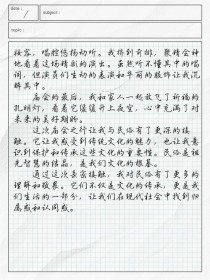 date:
subject:
topic:
秘感，唱腔悠扬动听。我挤到前排，聚精会神
地看着这场精彩的演出。虽然听不懂其中的唱
词，但演员们生动的表演和华丽的服饰让我沉
醉其中。
庙会的最后，我和家人一起放飞了祈福的
孔明灯，看着它缓缓升上夜空，心中充满了对
未来的美好期盼。
这次庙会之行让我与民俗有了更深的接
触。它让我感受到传统文化的魅力，也让我意
识到保护和传承这些文化的重要性。民俗是祖
先智慧的结晶，是我们文化的根基。
通过这次亲密接触，我对民俗有了更多的
理解和敬畏。它们不仅是文化的传承，更是我
们生活的一部分，让我们在现代社会中找到归
属感和认同感。